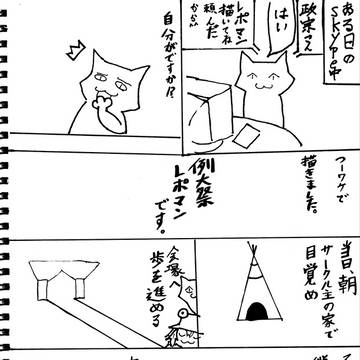 ある日の
SKYPE中
政宗さん
はい
レポマン
描いてね
頼んだ
かんな
自分がですか!?
つーワケで
描きました。
例大祭
レポマン
です。
当日朝
サークル主の家で
目覚め
会場へ
歩を進める